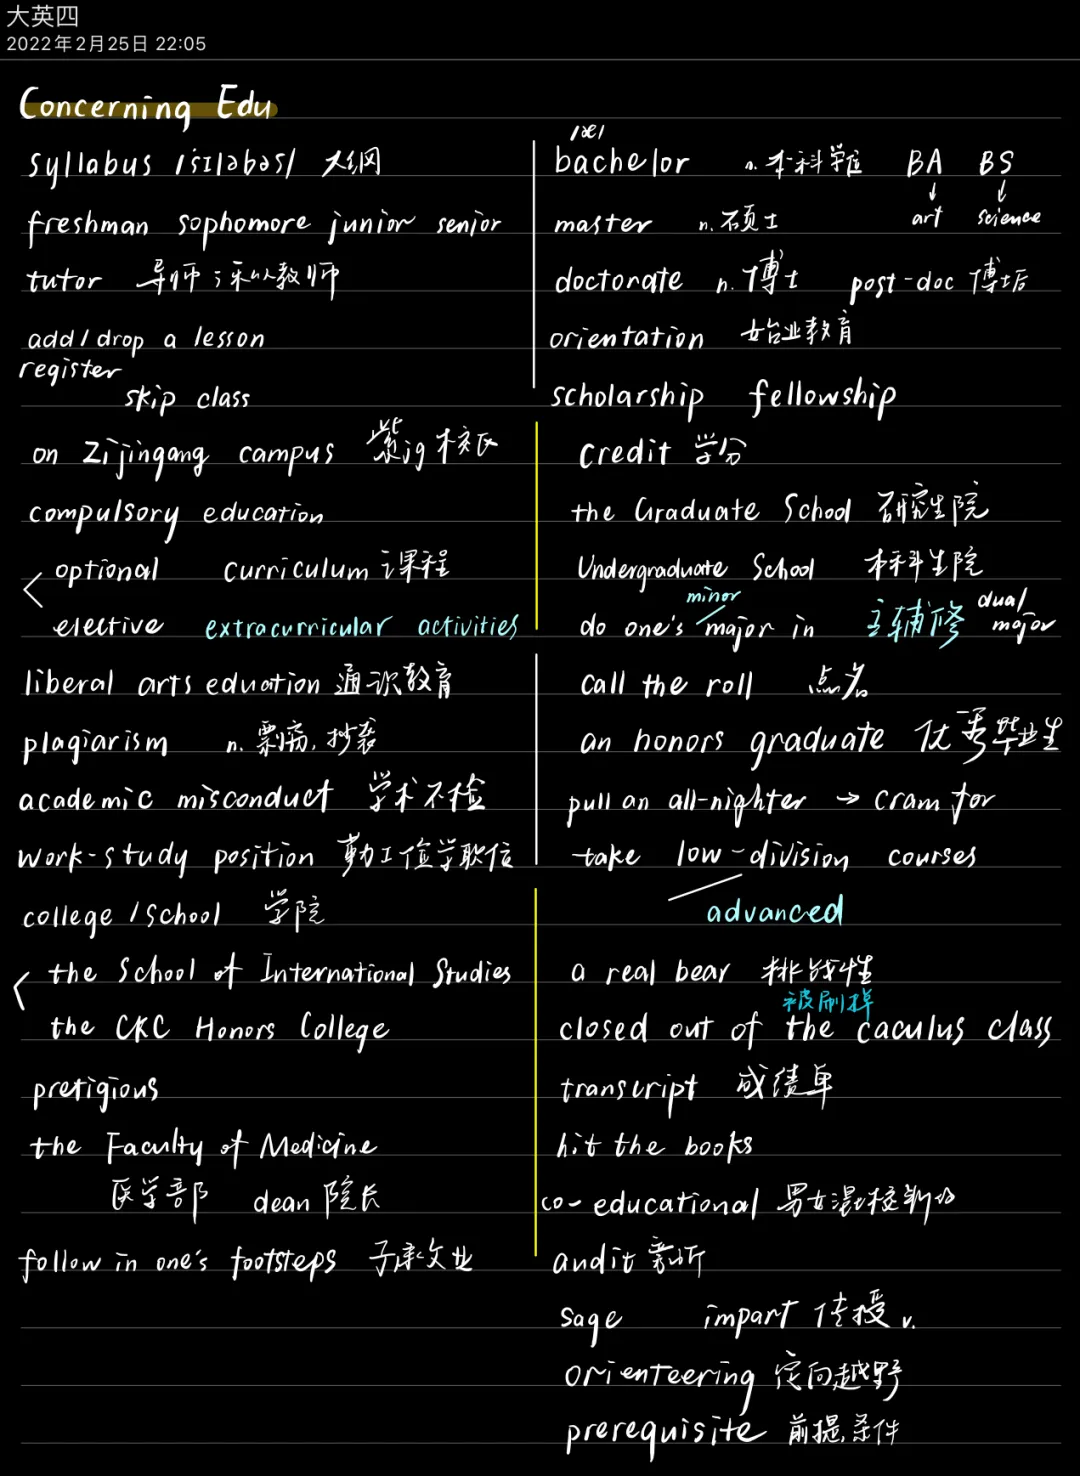 大英四
2022年2月25日 22:05
Concerning Edu
syllabus /sɪləbəs/ 大纲
freshman sophomore junior senior
tutor 导师；私人教师
add/drop a lesson
register
skip class
on Zijingang campus 紫jg校区
compulsory education
optional curriculum 课程
elective extracurricular activities
liberal arts eduation 通识教育
plagiarism n. 剽窃，抄袭
academic misconduct 学术不检
work-study position 勤工俭学职位
college/School 学院
the School of International Studies
the CKC Honors College
pretigious
the Faculty of Medicine
医学部 dean 院长
follow in one's footsteps 子承父业
/æ/
bachelor n. 本科学位 BA BS
art science
master n. 硕士
doctorate n. 博士 post-doc 博士后
orientation 始业教育
scholarship fellowship
credit 学分
the Graduate School 研究生院
Undergraduate School 本科生院
minor
do one's major in 主辅修 dual major
call the roll 点名
an honors graduate 优秀毕业生
pull an all-nighter → cram for
take low-division courses
advanced
a real bear 挑战性
被刷掉
closed out of the caculus class
transcript 成绩单
hit the books
co-educational 男女混校制的
audit 旁听
sage impart 传授 v.
orienteering 定向越野
prerequisite 前提条件